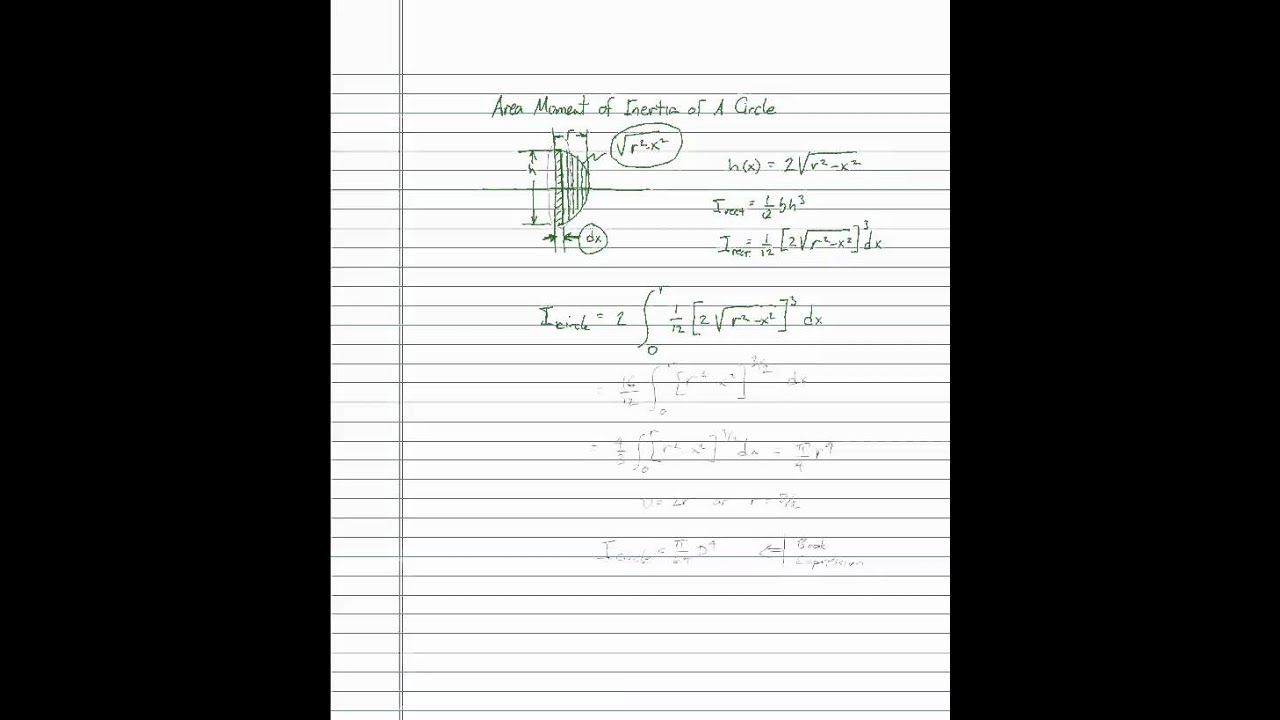 Area Moment of Inertia of A Circle
r
√r²-x²
h
h(x) = 2√r²-x²
I rect = 1/12 bh³
dx
I rect. = 1/12 [2√r²-x²]³ dx
I circle = 2 ∫₀ʳ 1/12 [2√r²-x²]³ dx
= 16/12 ∫₀ʳ [r² x²]^3/2 dx
= 4/3 ∫₀ʳ [r² x²]^3/2 dx = π/4 r⁴
D = 2r or r = D/2
I circle = π/64 D⁴ ⇐ Book
Expression